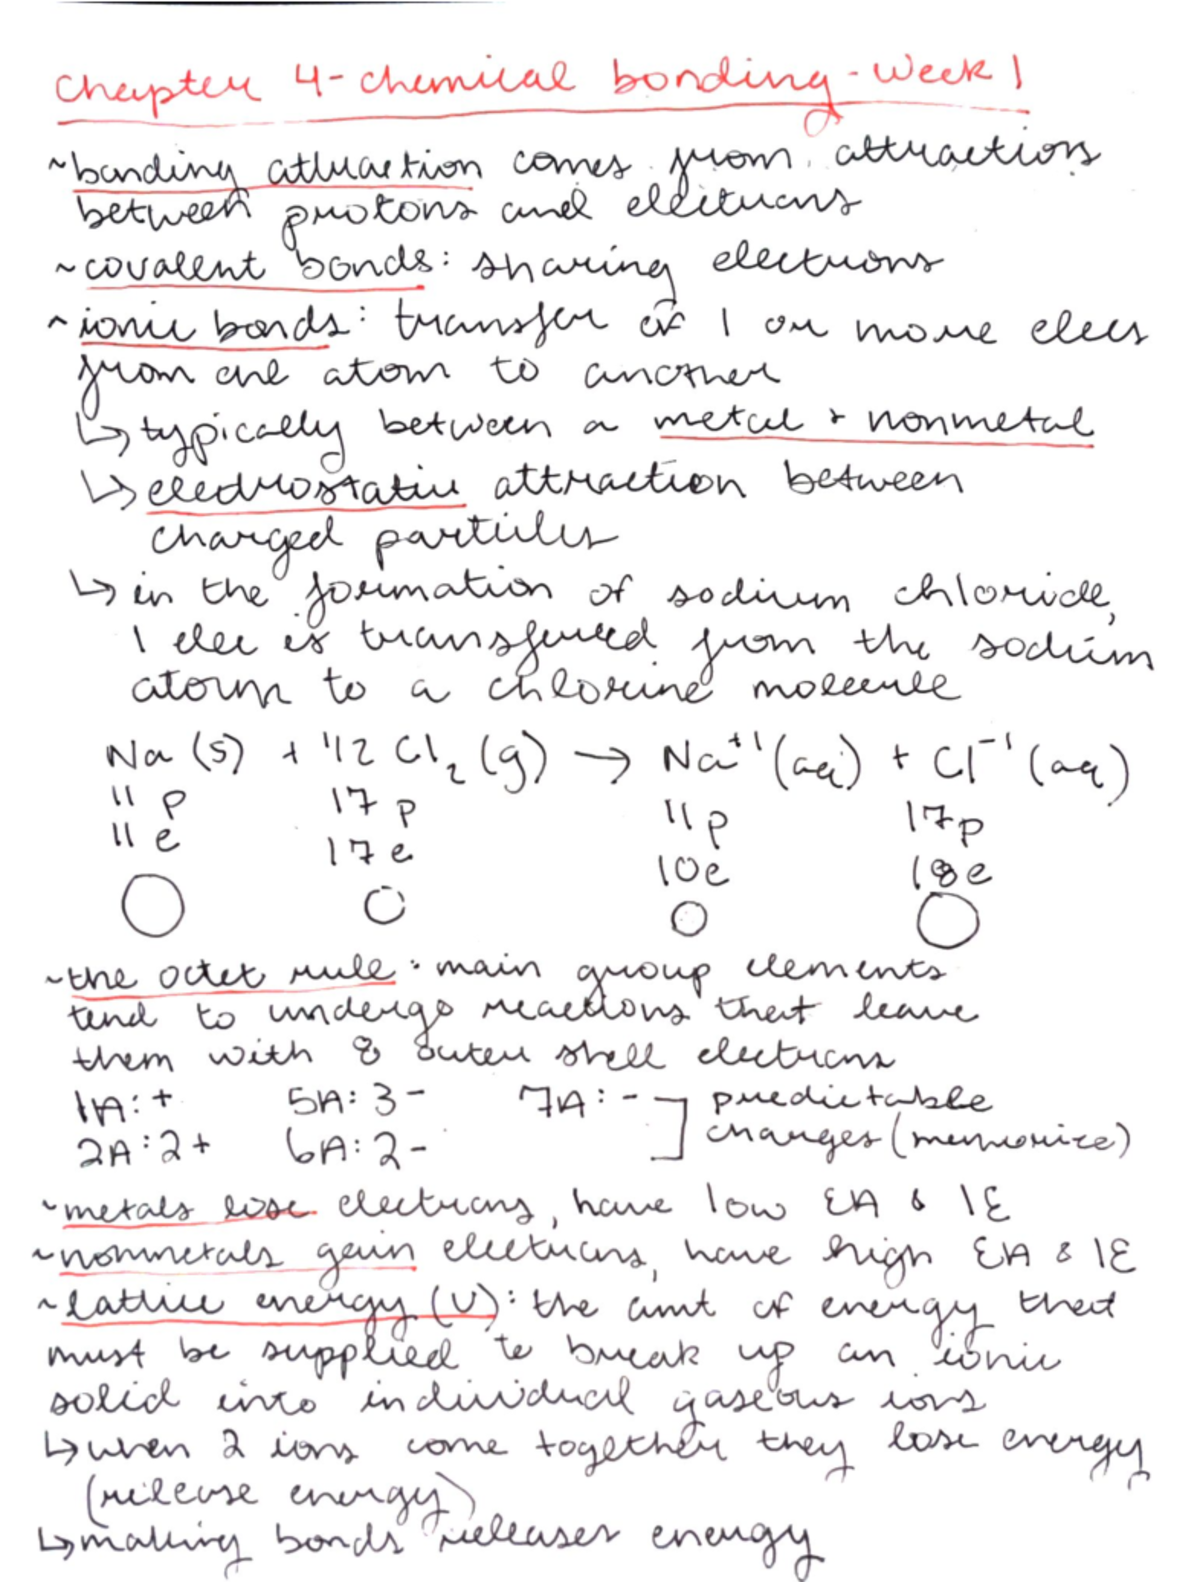 Chapter 4 - chemical bonding - Week 1
~ bonding attraction comes from attraction
between protons and electrons
~ covalent bonds: sharing electrons
~ ionic bonds: transfer of 1 or more elecs
from one atom to another
↳ typically between a metal + nonmetal
↳ electrostatic attraction between
charged particles
↳ in the formation of sodium chloride,
1 elec is transferred from the sodium
atom to a chlorine molecule
Na (s) + 1/2 Cl₂ (g) → Na⁺¹ (aq) + Cl⁻¹ (aq)
11 p 17 p 11 p 17 p
11 e 17 e 10 e 18 e
~ the octet rule: main group elements
tend to undergo reactions that leave
them with 8 outer shell electrons
1A: + 5A: 3- 7A: - predictable
2A: 2+ 6A: 2- charges (memorize)
~ metals lose electrons, have low EA & IE
~ nonmetals gain electrons, have high EA & IE
~ lattice energy (U): the amt of energy that
must be supplied to break up an ionic
solid into individual gaseous ions
↳ when 2 ions come together they lose energy
(release energy)
↳ making bonds releases energy